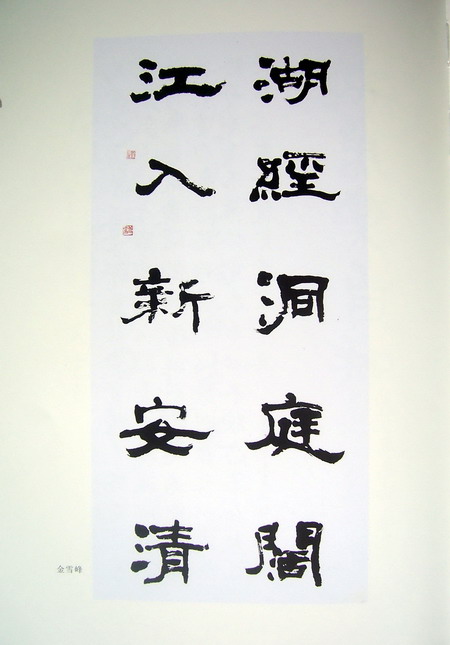 湖經洞庭闊
江入新安清
金雪峰